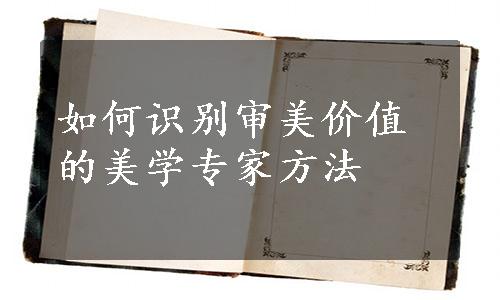 如何识别审美价值
的美学专家方法